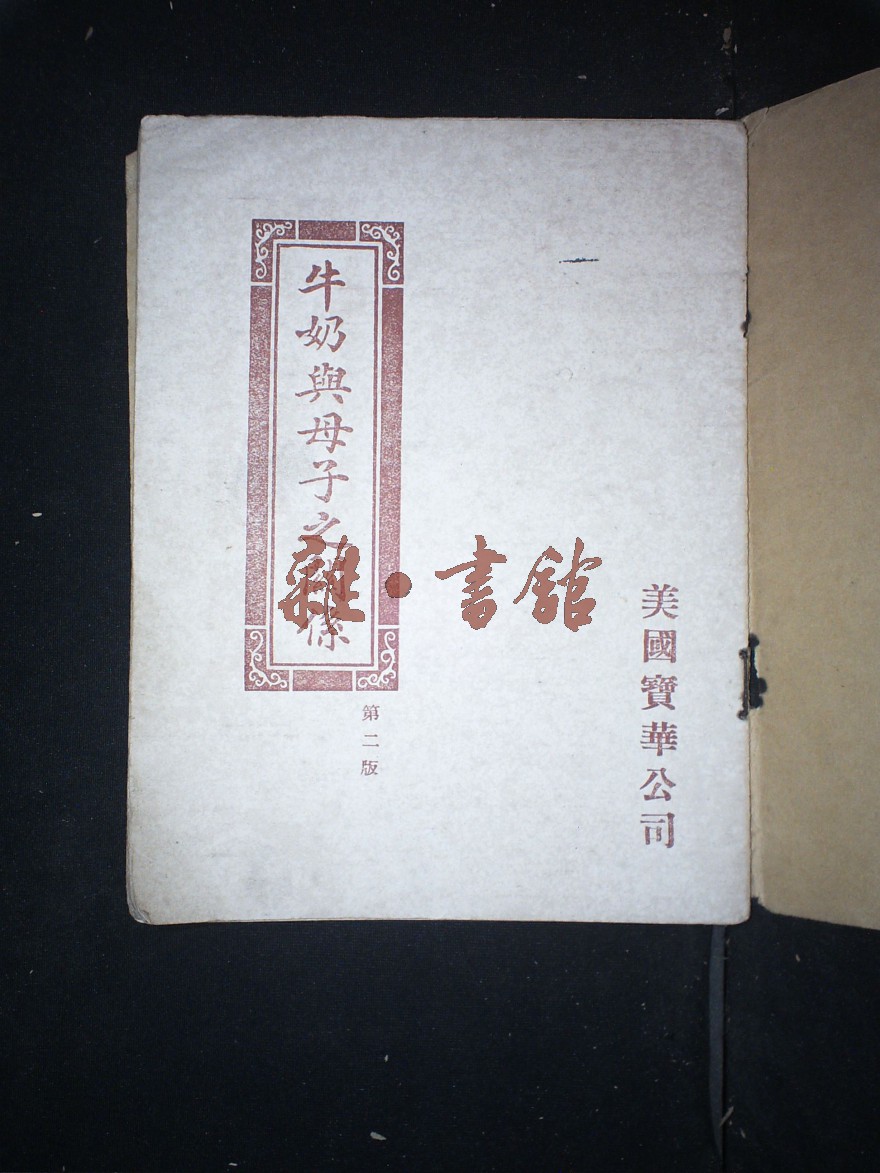 美國寶華公司
牛奶與母子之關係
第二版
雜·書館